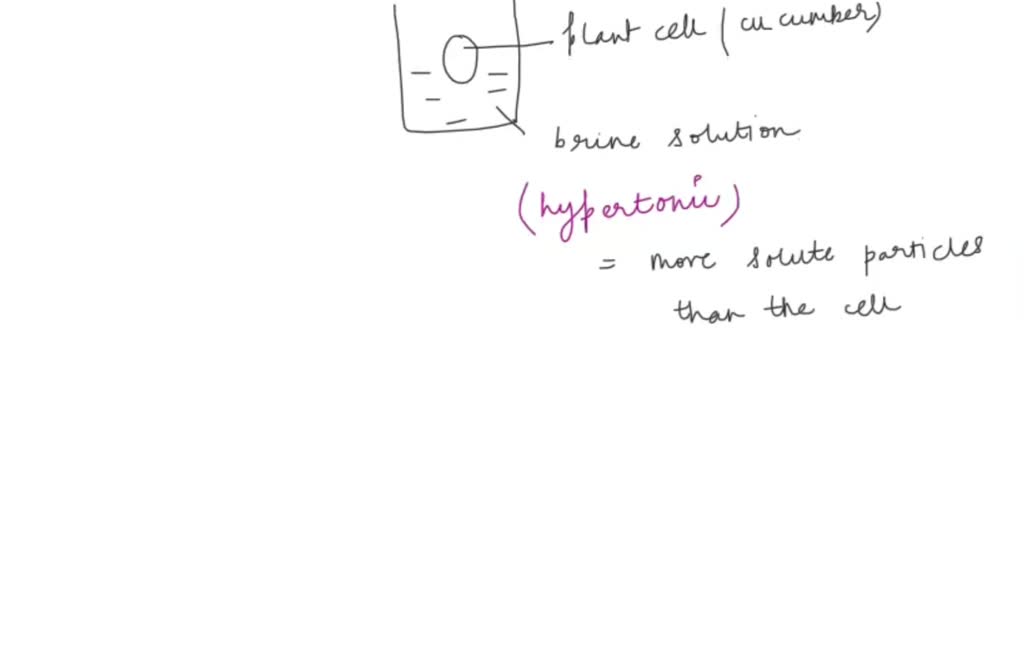 plant cell (cucumber)
brine solution
(hypertonic)
= more solute particles
than the cell